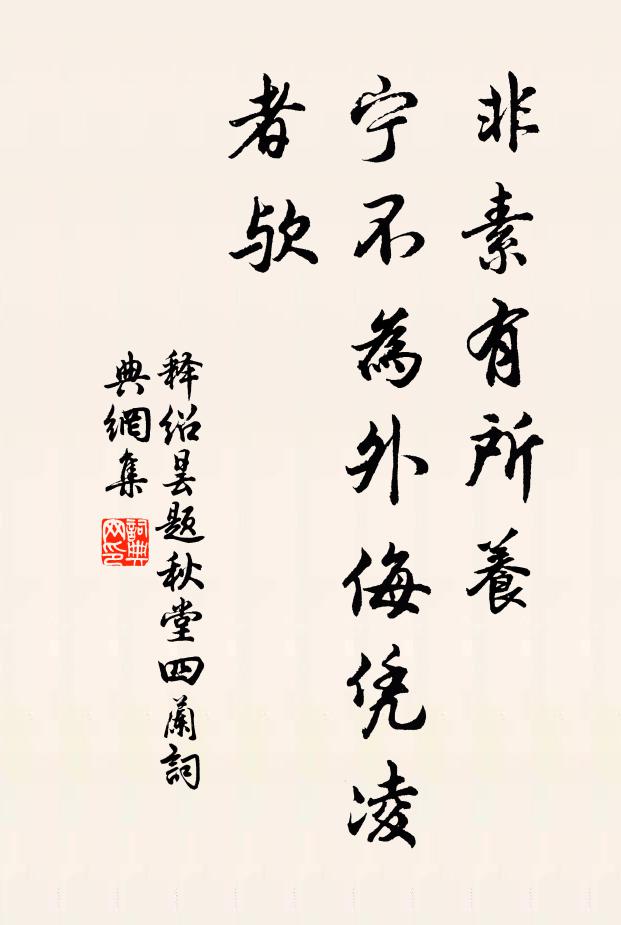 非素有所養
宁不為外侮凭凌
者欤
释绍昙题秋堂四蘭詞
典網集
詞典
网印